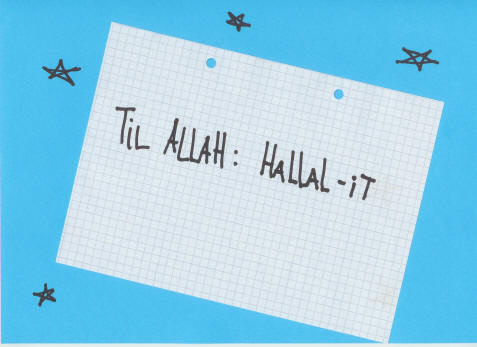 TiL ALLAH: HALLAL-iT